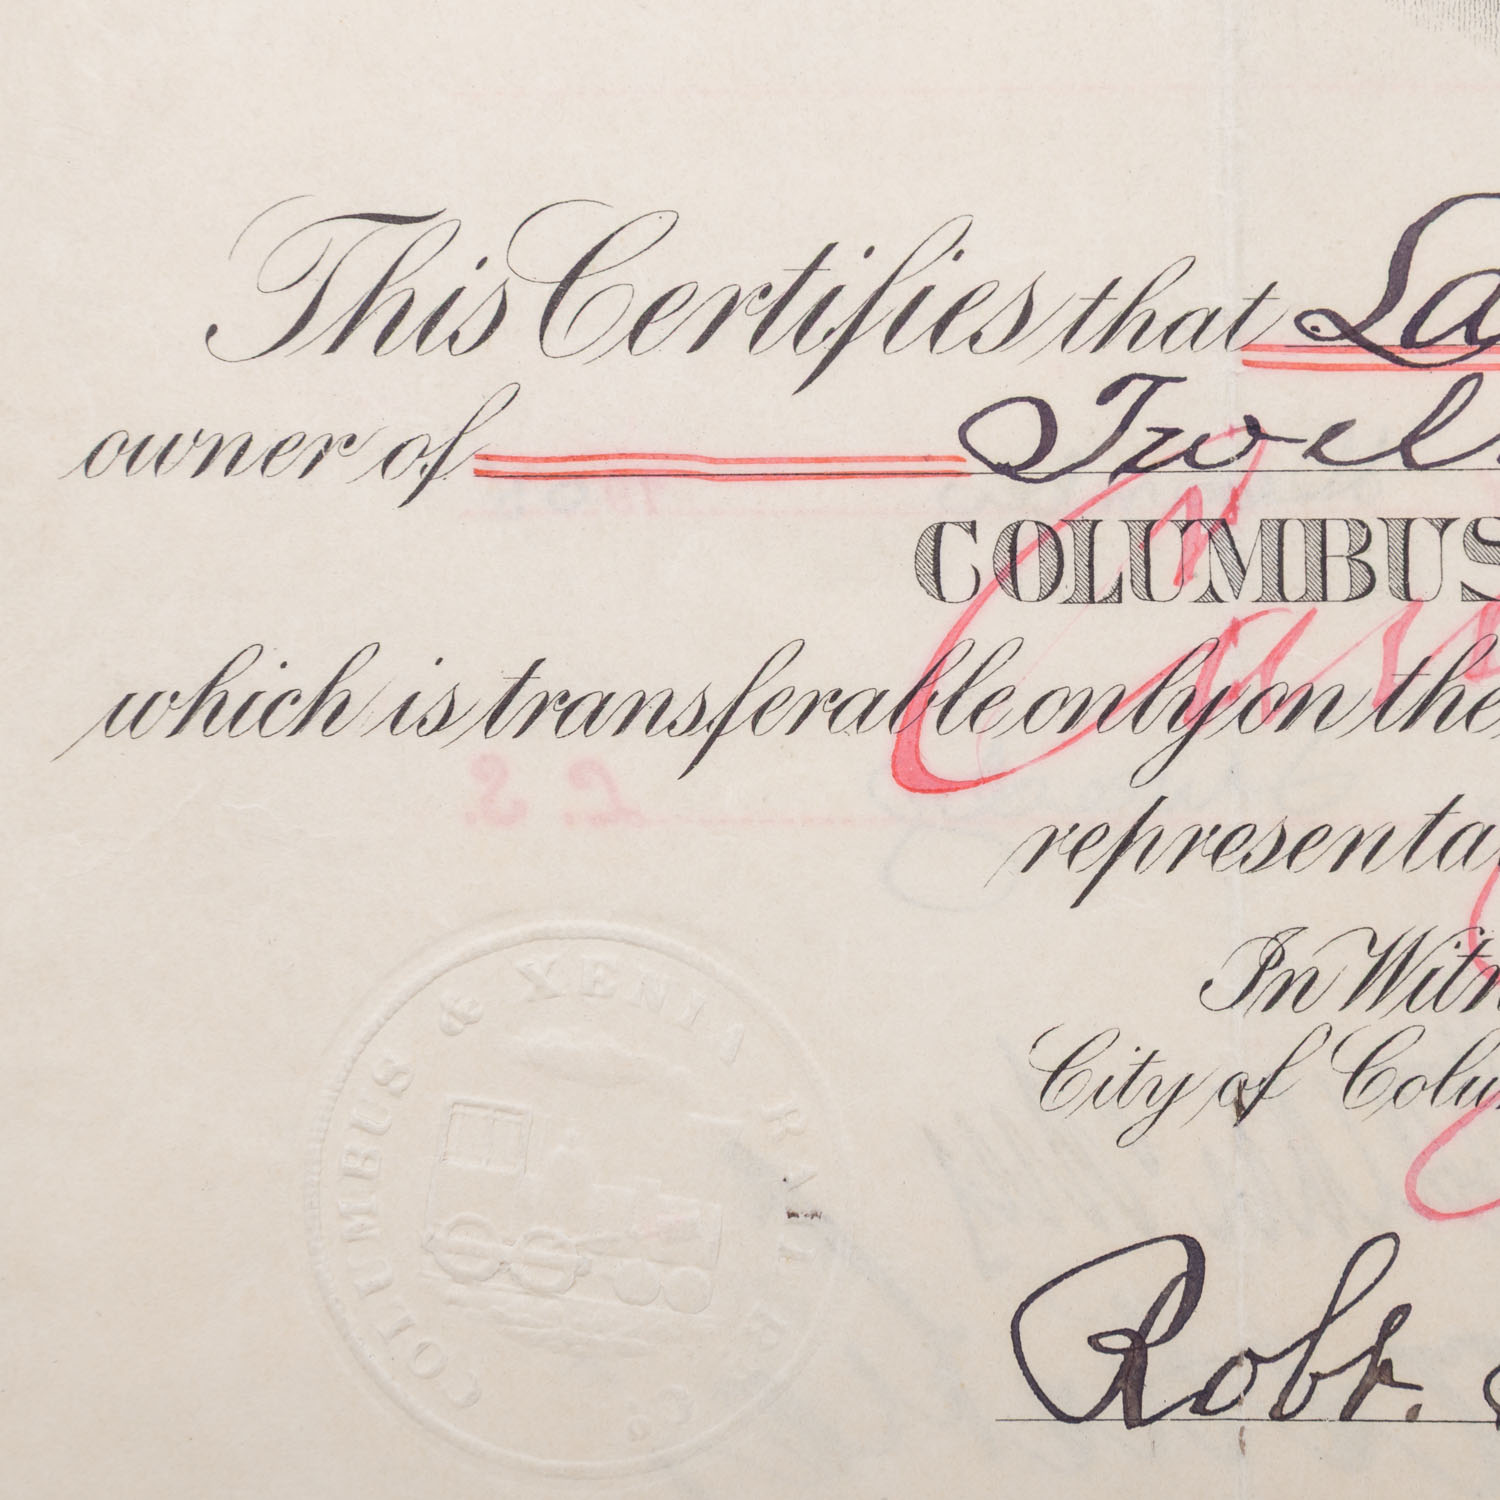 This Certifies that La
owner of Twel
COLUMBUS
which is transferable only on the
representa
In Witn
City of Colu
Robt.
COLUMBUS & XENIA RAIL R. Co.
L. S.